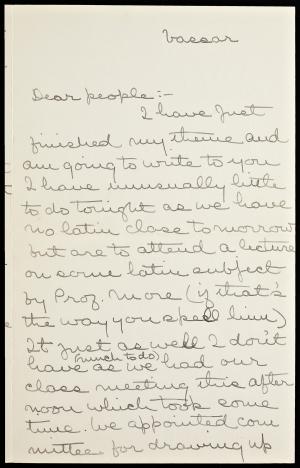 Vassar
Dear people:-
I have just
finished my theme and
am going to write to you
I have unusually little
to do tonight as we have
no latin class tomorrow
but are to attend a lecture
on some latin subject
by Prof. More (if that's
the way you spell him)
It just as well I don't
have (much to do) as we had our
class meeting this after
noon which took some
time. We appointed com
mittee for drawing up